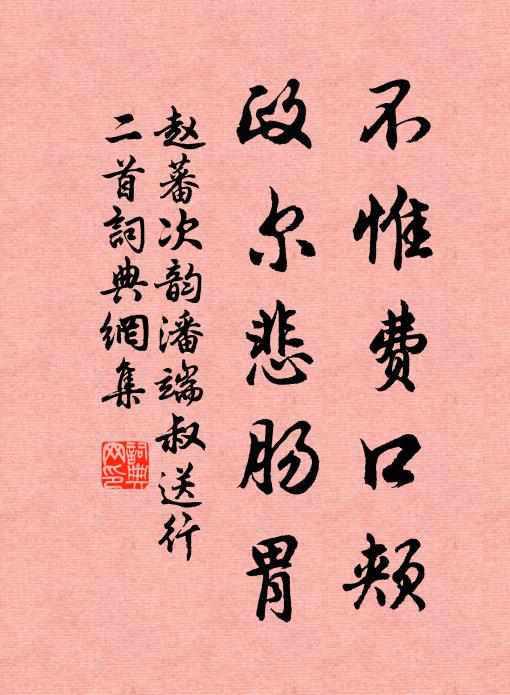 不惟费口颊
政尔悲肠胃
赵蕃次韵潘端叔送行
二首詞典網集
詞典网印